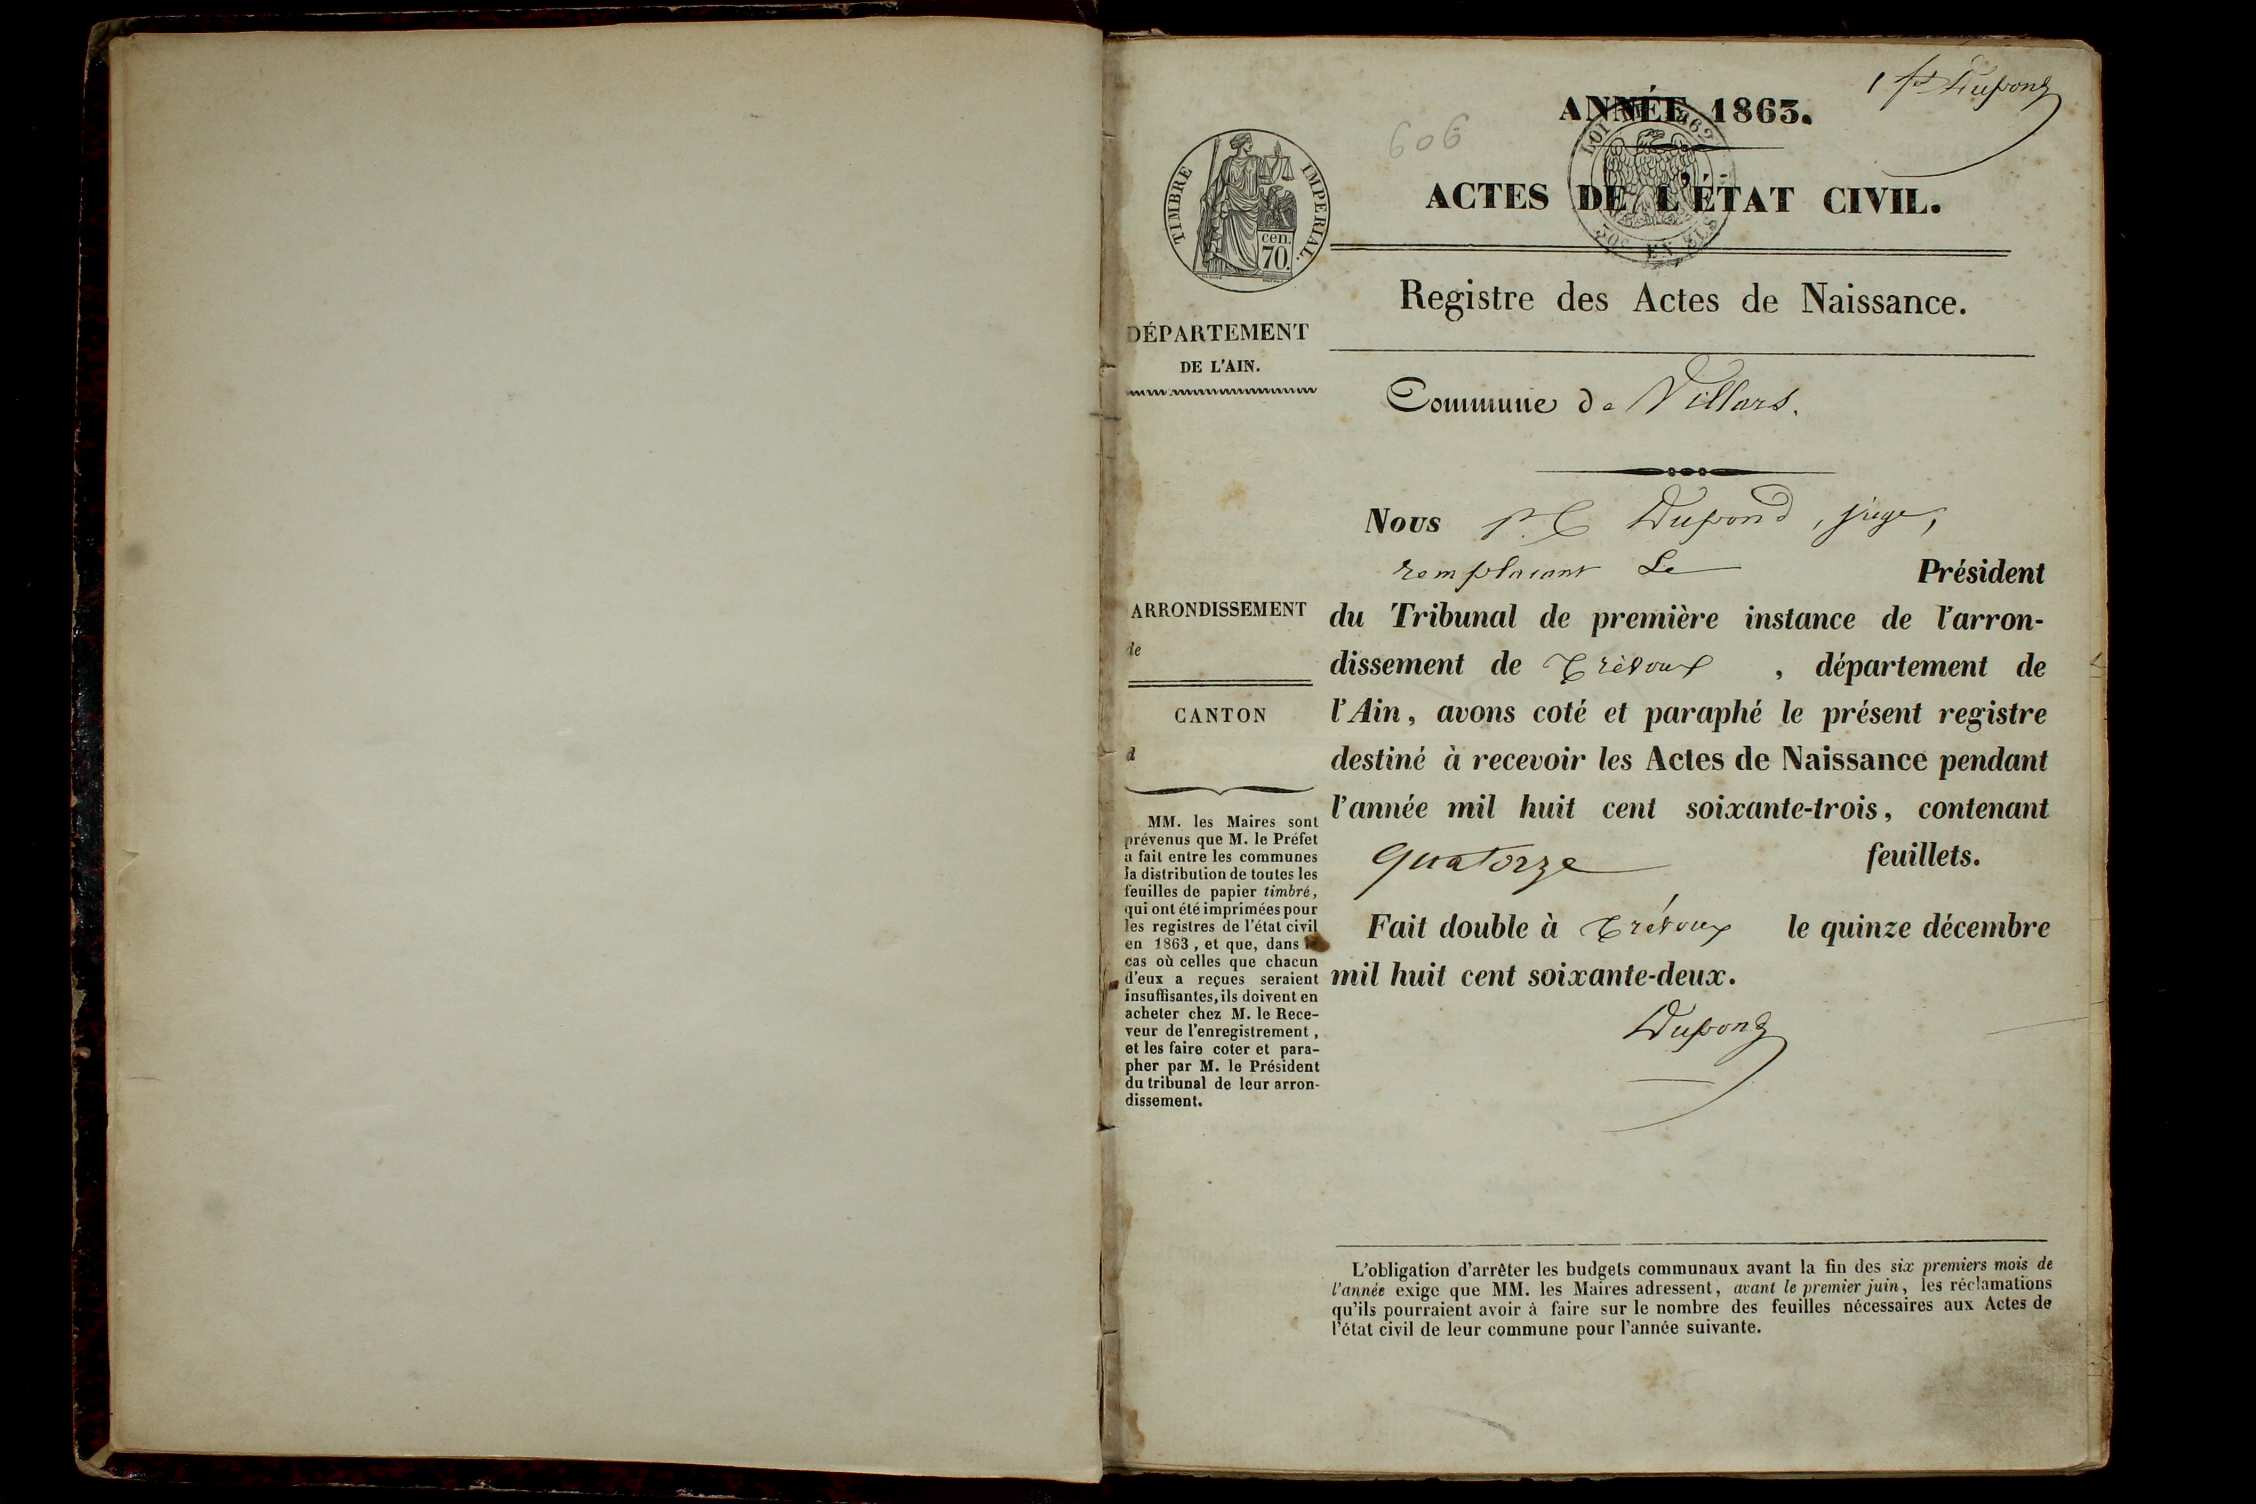 1 ft Dupond
ANNÉE 1863.
606
LOI DE 1862
50c EN SUS
TIMBRE IMPERIAL.
cen.
70.
ACTES DE L'ÉTAT CIVIL.
Registre des Actes de Naissance.
DÉPARTEMENT
DE L'AIN.
Commune de Villars.
Nous Dupond, juge,
remplacant Le Président
du Tribunal de première instance de l'arron-
dissement de Trévoux, département de
l'Ain, avons coté et paraphé le présent registre
destiné à recevoir les Actes de Naissance pendant
l'année mil huit cent soixante-trois, contenant
quatorze feuillets.
Fait double à Trévoux le quinze décembre
mil huit cent soixante-deux.
Dupond
ARRONDISSEMENT
de
CANTON
d
MM. les Maires sont
prévenus que M. le Préfet
a fait entre les communes
la distribution de toutes les
feuilles de papier timbré,
qui ont été imprimées pour
les registres de l'état civil
en 1863, et que, dans le
cas où celles que chacun
d'eux a reçues seraient
insuffisantes, ils doivent en
acheter chez M. le Rece-
veur de l'enregistrement,
et les faire coter et para-
pher par M. le Président
du tribunal de leur arron-
dissement.
L'obligation d'arrêter les budgets communaux avant la fin des six premiers mois de
l'année exige que MM. les Maires adressent, avant le premier juin, les réclamations
qu'ils pourraient avoir à faire sur le nombre des feuilles nécessaires aux Actes de
l'état civil de leur commune pour l'année suivante.